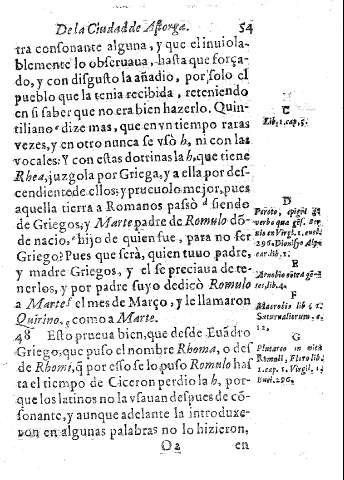 De la Ciudad de Astorga. 54
tra consonante alguna, y que el inuiola-
blemente lo obseruaua, hasta que força-
do, y con disgusto la añadio, por solo el
pueblo que la tenia recibida, reteniendo
en si saber que no era bien hazerlo. Quin-
tiliano dize mas, que en vn tiempo raras
vezes, y en otro nunca se vsò h, ni con las
vocales: Y con estas dotrinas la h, que tiene
Rhea, juzgola por Griega, y a ella por des-
cendiente de ellos: y prueuolo mejor, pues
aquella tierra a Romanos passò siendo
de Griegos, y Marte padre de Romulo dõ-
de nacio, hijo de quien fue, para no ser
Griego? Pues que serà, quien tuuo padre,
y madre Griegos, y el se preciaua de te-
nerlos, y por padre suyo dedicò Romulo
a Marte el mes de Março, y le llamaron
Quirino, como a Marte.
48 Esto prueua bien, que desde Euãdro
Griego, que puso el nombre Rhoma, o des
de Rhomi, q̃ por esso se lo puso Romulo has
ta el tiempo de Ciceron perdio la h, por-
que los latinos no la vsauan despues de cõ-
sonante, y aunque adelante la introduxe-
ron en algunas palabras no lo hizieron,
O2 en
C
Lib. 1. cap. 5.
D
Peroto,
verbo qua
nis en Virgil.
296. Dionysio
car. lib. 1.
E
Arnobio cõtra gẽ-
tes lib. 4.
F
Macrobio lib. 1.
Saturnaliorum, c.
12.
G
Plutarco in vita
Romuli, Floro lib.
1. cap. 1. Virgil. 1.
Enei. 296.